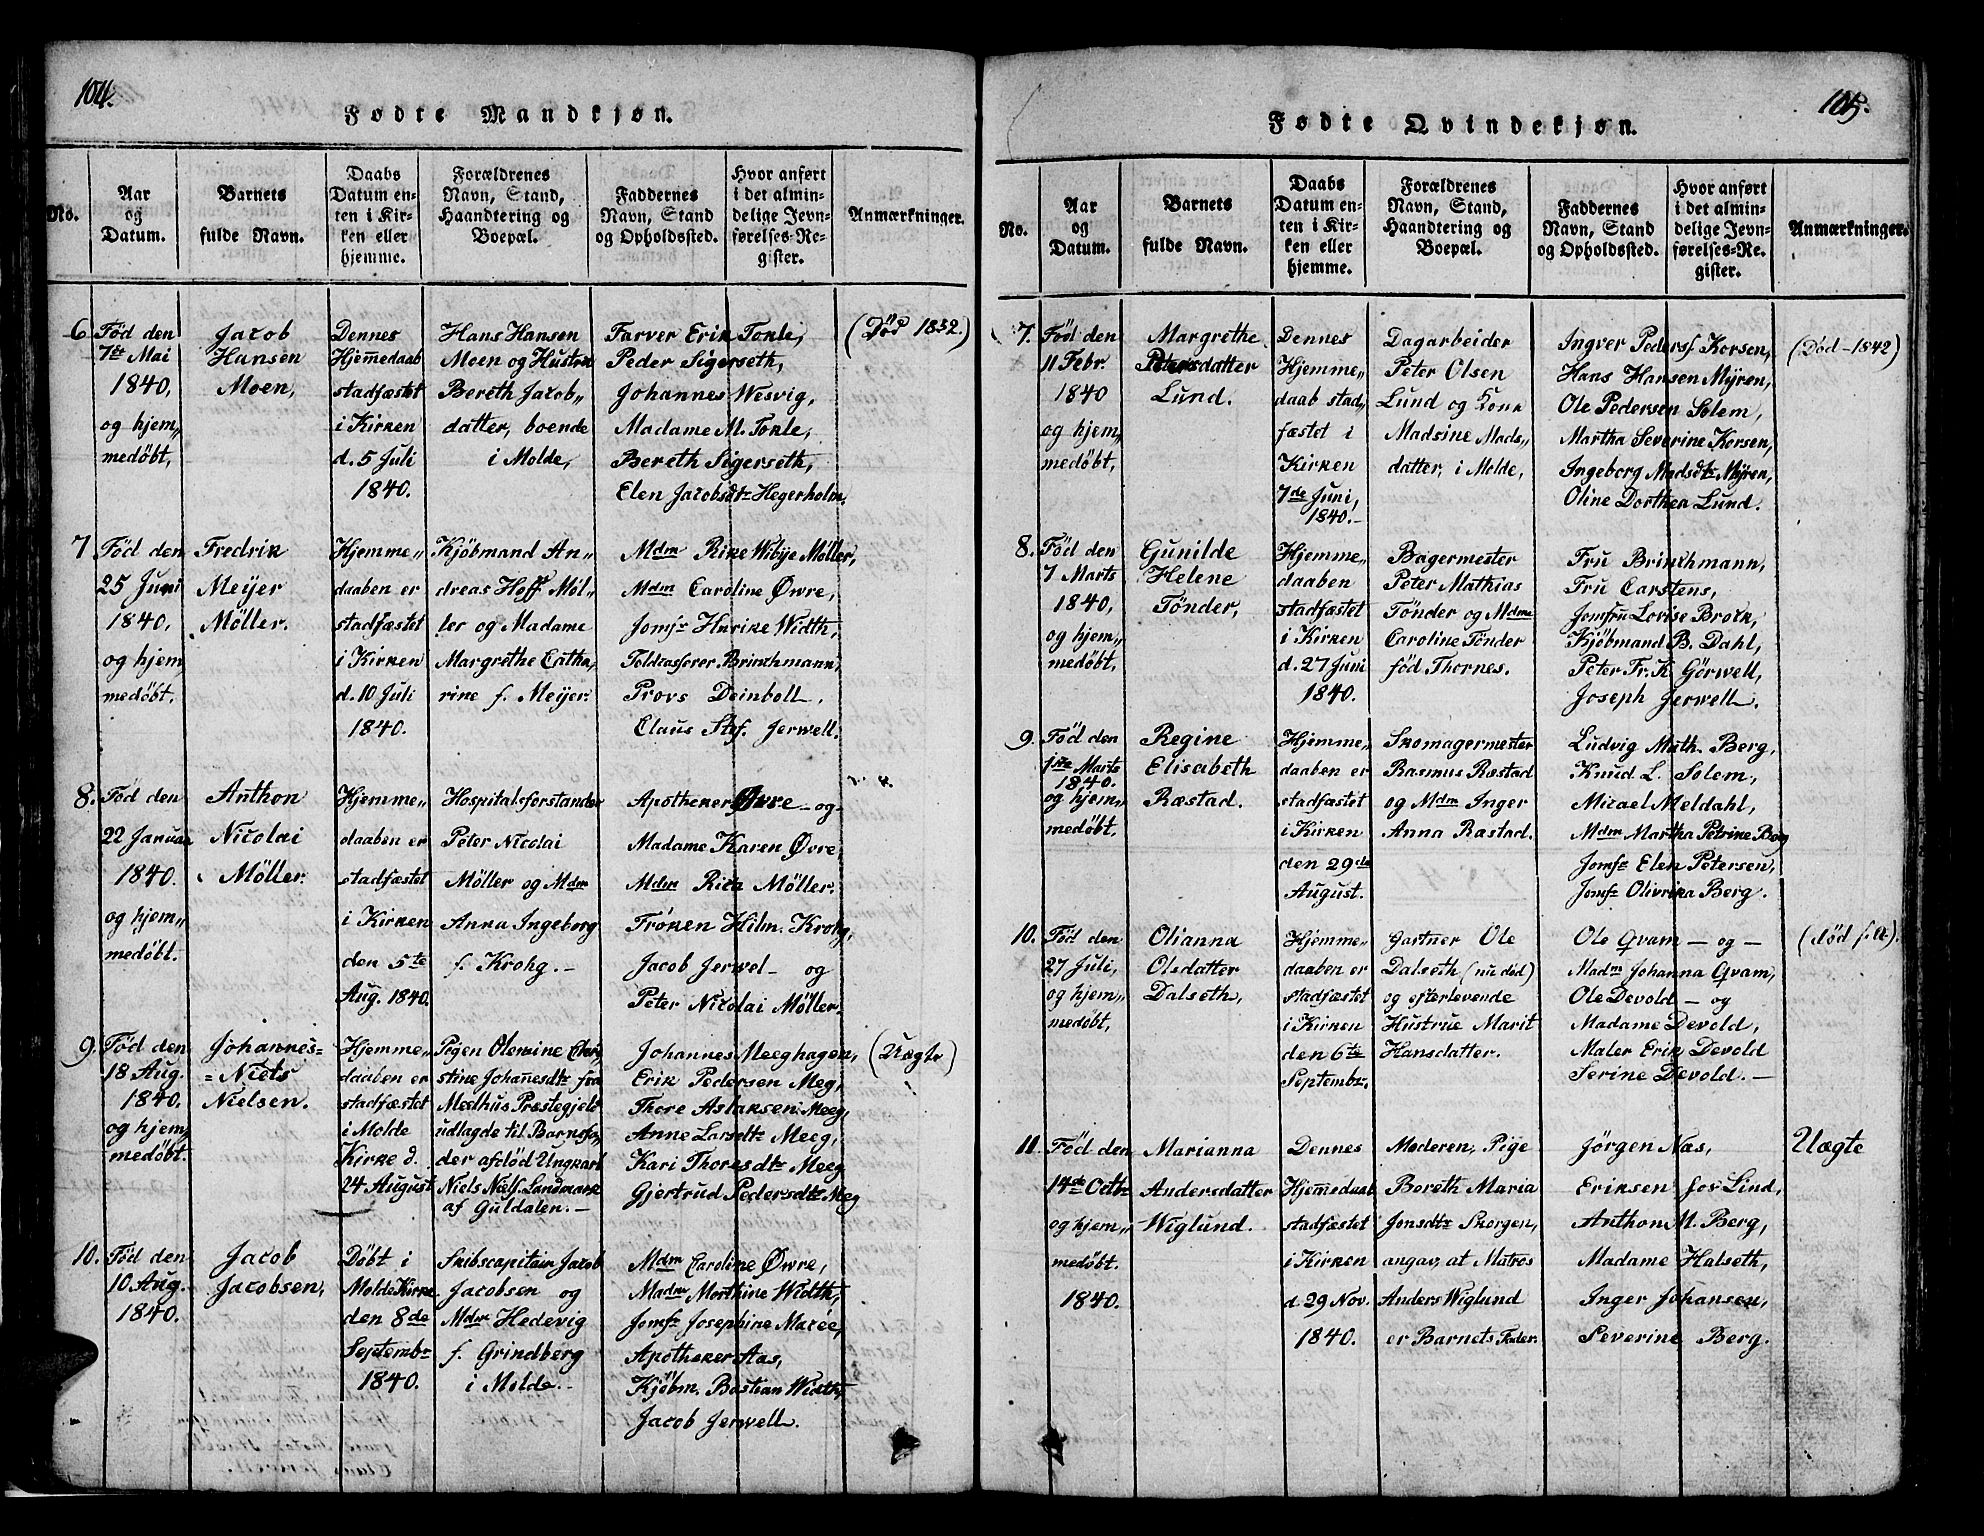 104.
Fødte Mandkjøn.
No.
Aar
og
Datum.
Barnets
fulde Navn.
Daabs
Datum en-
ten i Kir-
ken eller
hjemme.
Forældrenes
Navn, Stand,
Haandtering og
Boepæl.
Faddernes
Navn, Stand
og Opholdssted.
Hvor anført
i det almin-
delige Jevn-
førelses-Re-
gister.
Anmærkninger.
6
Fød den
7de Mai
1840,
og hjem„
medøbt,
Jacob
Hansen
Moen,
Dennes
Hjem̄edaab
stadfæstet
i Kirken
d. 5 Juli
1840.
Hans Hansen
Moen og Hustru
Bereth Jacob„
datter, boende
i Molde,
Farver Erik Tokle,
Peder Sigerseth,
Johannes Wesvig,
Madame M. Tokle,
Bereth Sigerseth,
Elen Jacobsdtr Hegerholm.
(Død 1832.)
7
Fød den
25 Juni
1840,
og hjem
medøbt.
Fredrik
Meijer
Möller.
Hjemme„
daaben er
stadfæstet
i Kirken
d. 10 Juli
1840.
Kjöbmand An„
dreas Hoff Möl„
ler og Madame
Margrethe Catha,
rine f. Meijer.
Mdm Rike Wibye Möller,
Mdm Caroline Øvre,
Jomfr Henrike Width,
Toldkasserer Brinchmann,
Provs Deinboll,
Claus Stf. Jerwell.
8.
Fød den
22 Januar
1840.
og hjem„
medøbt.
Anthon
Nicolai
Möller.
Hjemme„
daaben er
stadfæstet
i Kirken
den 5te
Aug. 1840.
Hospitalsforstander
Peter Nicolai
Möller og Mdm
Anna Ingeborg
f. Krohg.–
Apotheker Øvre – og
Madame Karen Øvre,
Mdm Rika Möller.
Fröken Hilm. Krohg,
Jacob Jerwel – og
Peter Nicolai Möller.
9.
Fød den
18 Aug.
1840.
og hjem„
medøbt.
Johannes=
=Niels
Nielsen.
Hjemme„
daaben er
stadfæstet
i Molde
Kirke d.
24 August
Pigen Olemine
stine Johan̄esdtr fra
Meelhus Præstegjeld
udlagde til Barnsfa„
der afdöd Ungkarl
Niels Nielsf. Landmark
af Guldalen.–
Johannes Meeghagen,
Erik Pedersen Meg,
Thore Aslaksen Meeg,
Anne Larsdtr Meeg,
Kari Thoresdtr Meeg
Gjertrud Pedersdtr Meg
(Uægte)
10.
Fød den
10 Aug.
1840.
Jacob
Jacobsen,
Døbt i
Molde Kirke
den 8de
Septembr
1840.
Skibscapitain Jacob
Jacobsen og
Mdm Hedevig
f. Grindberg
i Molde.–
Mdm Caroline Øvre,
Madm Morthine Width,
Jomfr Josephine Maree,
Apotheker Aas,
Kjöbm. Bastian Width,
Jacob Jerwell.
105.
Fødte Qvindekjøn.
No.
Aar
og
Datum.
Barnets
fulde Navn.
Daabs
Datum en-
ten i Kir-
ken eller
hjemme.
Forældrenes
Navn, Stand,
Haandtering og
Boepæl.
Faddernes
Navn, Stand
og Opholdssted.
Hvor anført
i det almin-
delige Jevn-
førelses-Re-
gister.
Anmærkninger.
7.
Fød den
11 Febr.
1840
og hjem„
medøbt,
Margrethe
Petersdatter
Lund.
Dennes
Hjemme„
daab stad„
fæstet i
Kirken
7de Juni,
1840.–
Dagarbeider
Peter Olsen
Lund og Kone
Madsine Mads„
datter, i Molde,
Ingver Pedersf. Korsen,
Hans Hansen Myren,
Ole Pedersen Solem,
Martha Severine Korsen,
Ingeborg Madsdtr Myren,
Oline Dorthea Lund.
(Død – 1842)
8.
Fød den
7 Marts
1840,
og hjem„
medøbt.
Gunilde
Helene
Tönder,
Hjemme„
daaben
stadfæstet
i Kirken
d. 27 Juni
1840.
Bagermester
Peter Mathias
Tönder og Mdme
Caroline Tönder
föd Thornes.
Fru Brinchmann,
Fru Carstens,
Jomfru Lovise Brock,
Kjöbmand B. Dahl,
Peter Fr. K. Görwell,
Joseph Jerwell.
9.
Fød den
1ste Marts
1840.
og hjem„
medøbt.
Regine
Elisabeth
Ræstad.
Hjemme„
daaben er
stadfæstet
i Kirken
den 29de
August.
Skomagermester
Rasmus Ræstad
og Mdm Inger
Anna Rastad.
Ludvig Math. Berg,
Knud L. Solem,
Micael Meldahl,
Mdm Martha Petrine Berg
Jomfr Elen Petersen,
Jomfr Olivrika Berg.
10.
Fød den
27 Juli,
og hjem„
medøbt,
Olianna
Olsdatter
Dalseth,
Hjemme„
daaben er
stadfæstet
i Kirken
den 6te
Septembr.
Gastner Ole
Dalseth (nu död)
og efterlevende
Hustrue Marit
Hansdatter.
Ole Qvam – og –
Madm Johanna Qvam,
Ole Devold – og
Madame Devold,
Maler Erik Devold
Serine Devold.–
11.
Fød den
14de Octbr
og hjem„
medøbt.
1840.
Marianna
Andersdatter
Wiglund.
Dennes
Hjem̄edaab
stadfæstet
i Kirken
d. 29 Nov.
1840.
Moderen, Pige
Bereth Maria
Jonsdtr Skorgen,
angav, at Matros
Anders Wiglund
er Barnets Fader.
Jörgen Næs,
Eriksen Lind,
Anthon M. Berg,
Madame Halseth,
Inger Johansen,
Severine Berg.
Uægte